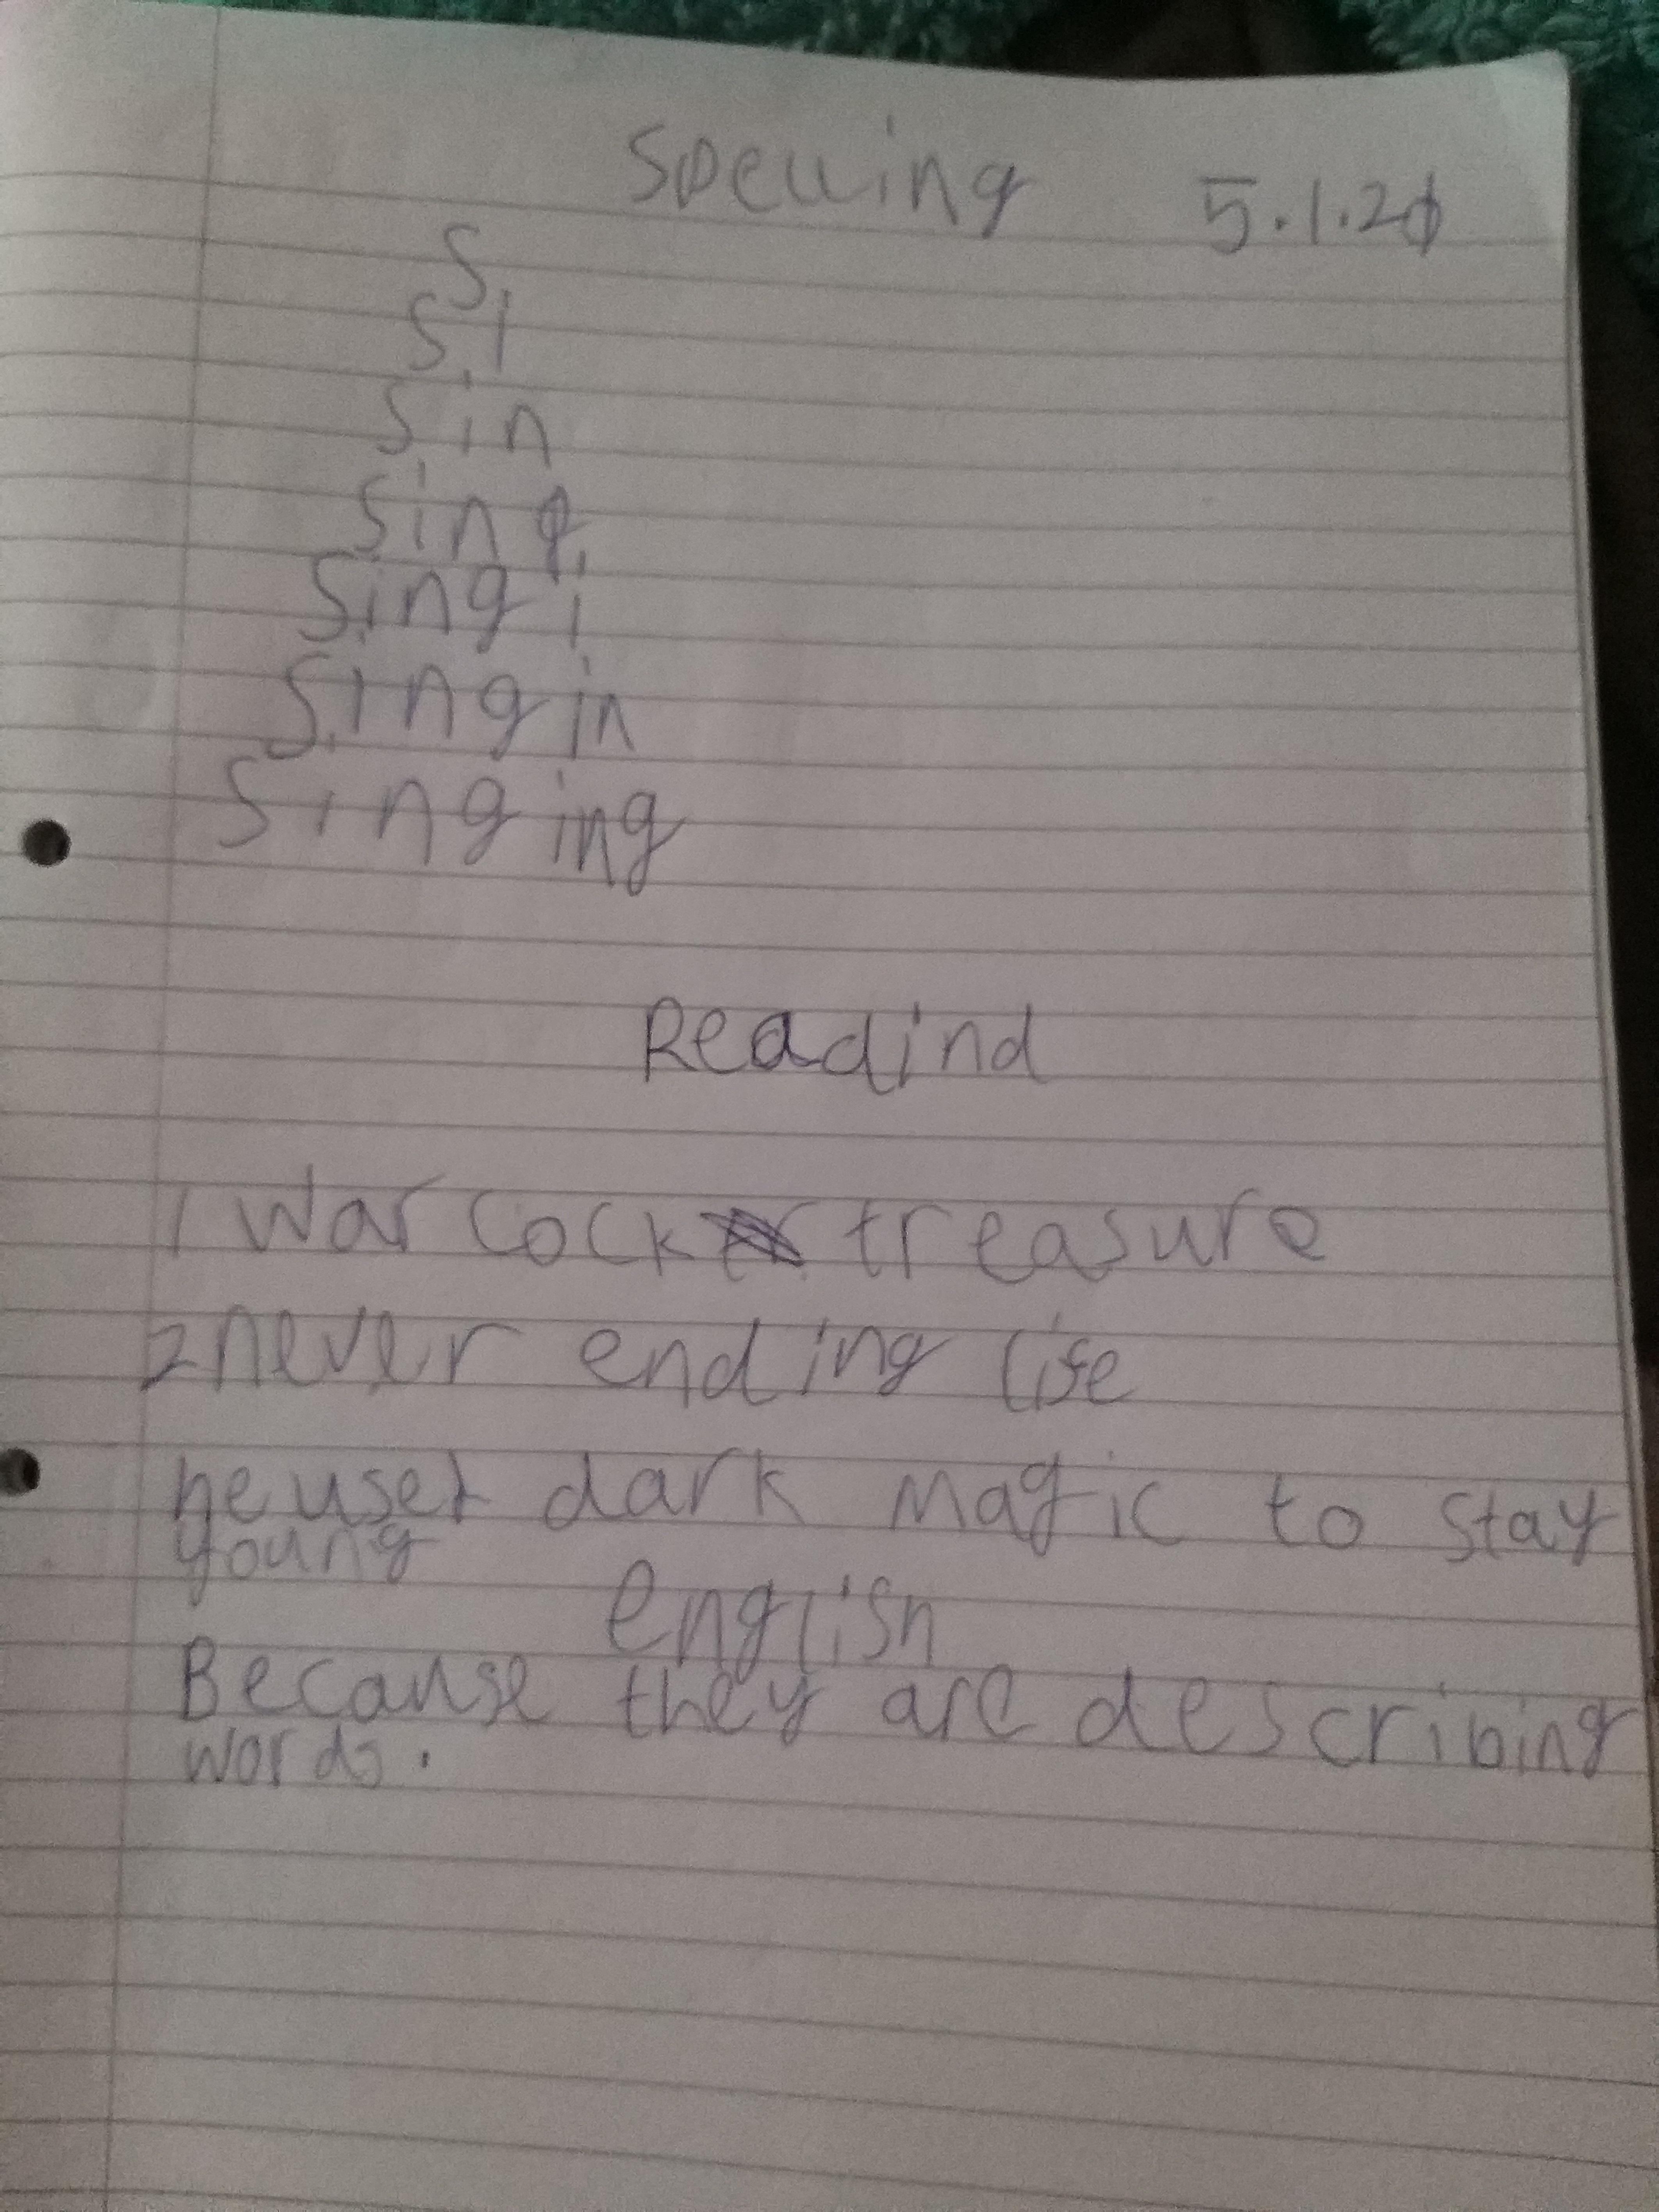 Spelling 5.1.21
S
Si
Sin
Sing
Singi
Singin
Singing
Readind
1 War lock treasure
2 never ending life
he uset dark magic to stay
young
english
Because they are describing
words.